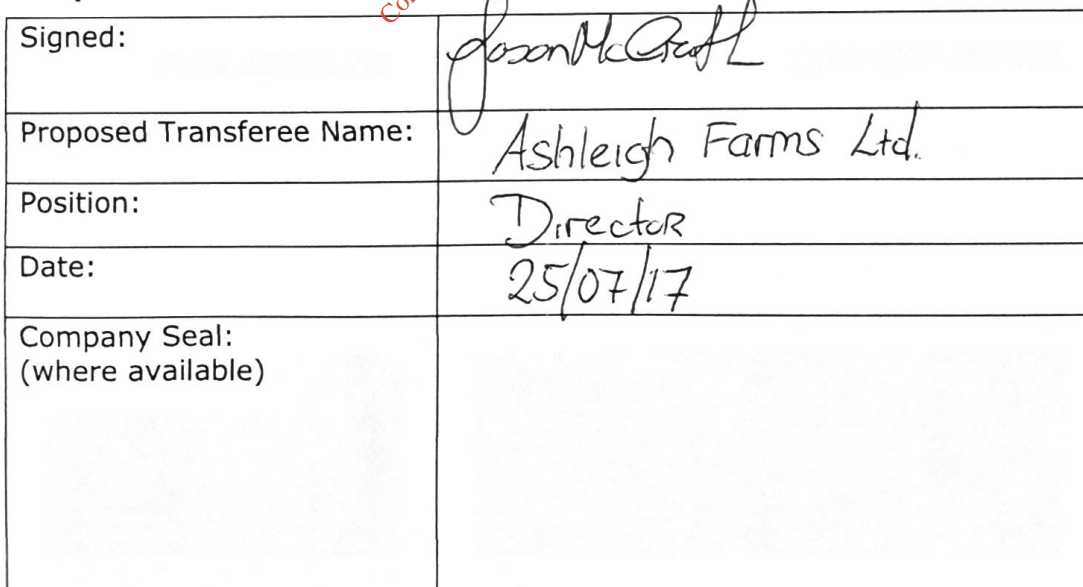 Signed:
Proposed Transferee Name: Ashleigh Farms Ltd.
Position: Director
Date: 25/07/17
Company Seal:
(where available)